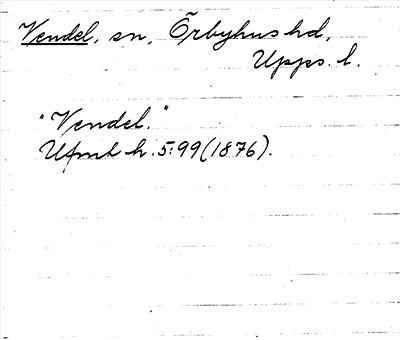 Vendel, sn, Örbyhus hd,
Upps. l.
"Vendel."
Ufmt h. 5:99 (1876).